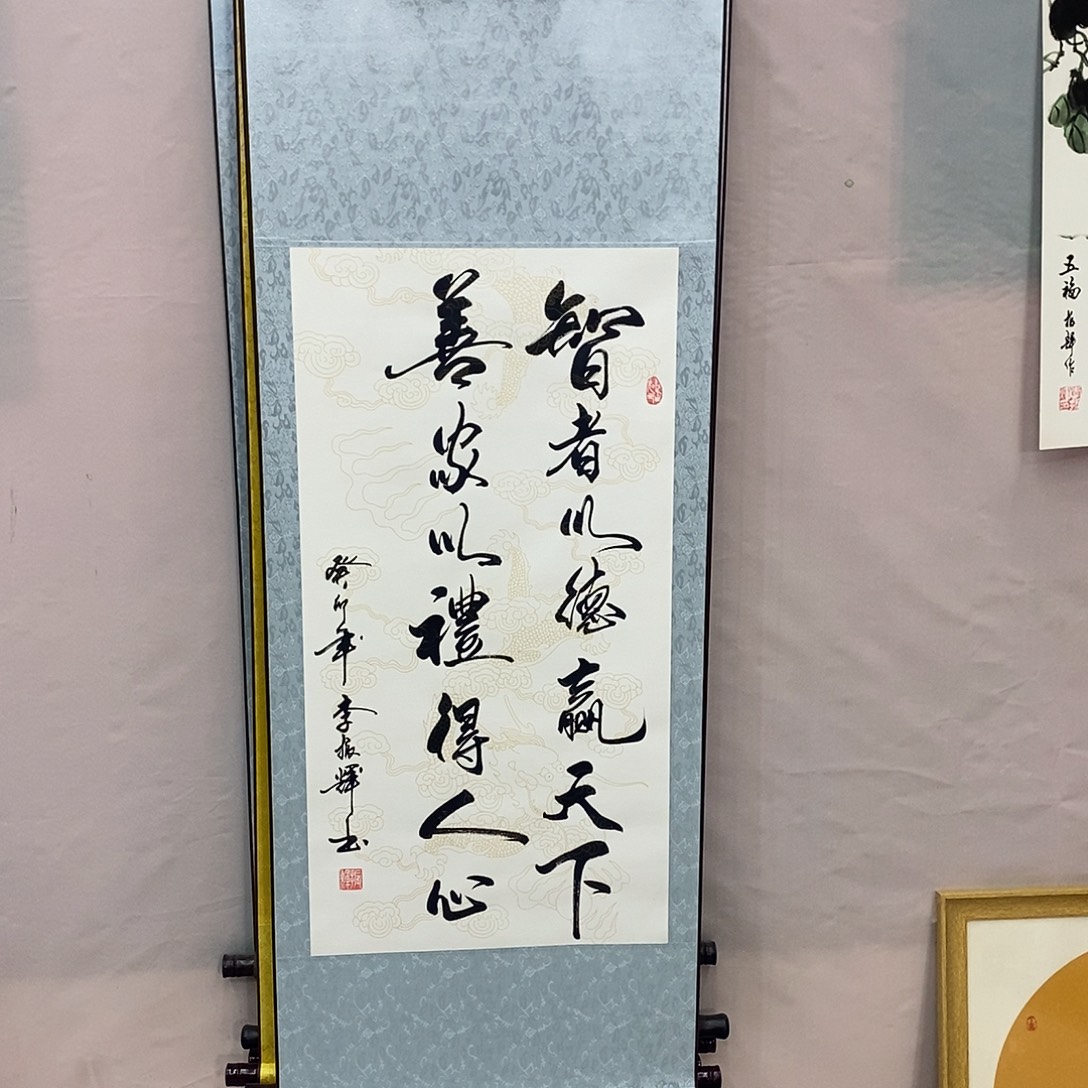 智者以德赢天下
善家以禮得人心
癸卯年 李振輝书
五福 振輝作